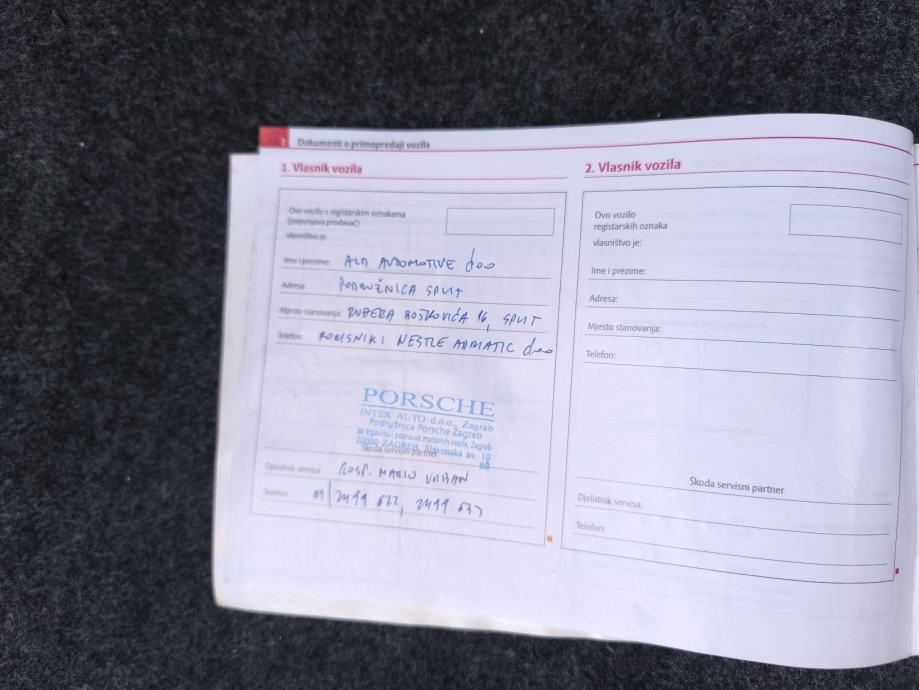 2 Dokumenti o primopredaji vozila
1. Vlasnik vozila
Ovo vozilo s registarskim oznakama
(popunjava prodavač)
vlasništvo je:
Ime i prezime: ALD AUTOMOTIVE doo
Adresa: PODRUŽNICA SPLIT
Mjesto stanovanja: RUĐERA BOŠKOVIĆA 16, SPLIT
Telefon: KORISNIK: NESTLE ADRIATIC doo
PORSCHE
INTER AUTO d.o.o., Zagreb
Podružnica Porsche Zagreb
za trgovinu i popravak motornih vozila, Zagreb
10000 ZAGREB, Slavonska av. 10
Škoda servisni partner
Djelatnik servisa: GOSP. MARIO URBAN
Telefon: 01/2499 622, 2499 637
2. Vlasnik vozila
Ovo vozilo
registarskih oznaka
vlasništvo je:
Ime i prezime:
Adresa:
Mjesto stanovanja:
Telefon:
Škoda servisni partner
Djelatnik servisa:
Telefon: